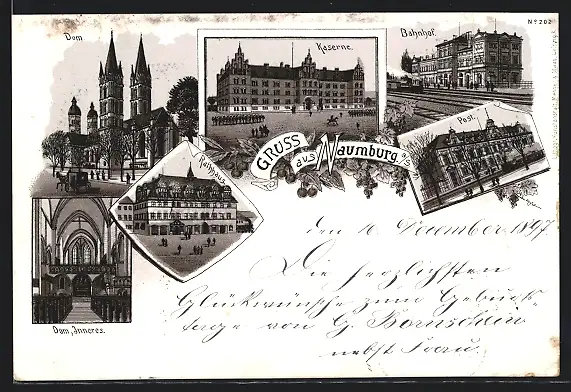 No 202
Dom
Kaserne.
Bahnhof.
Post.
Rathhaus
GRUSS aus Naumburg a/S.
Dom, Inneres.
den 10. Dezember 1897
Die herzlichsten
Glückwünsche zum Geburts-
tage von G. Bornschein
nebst Frau.